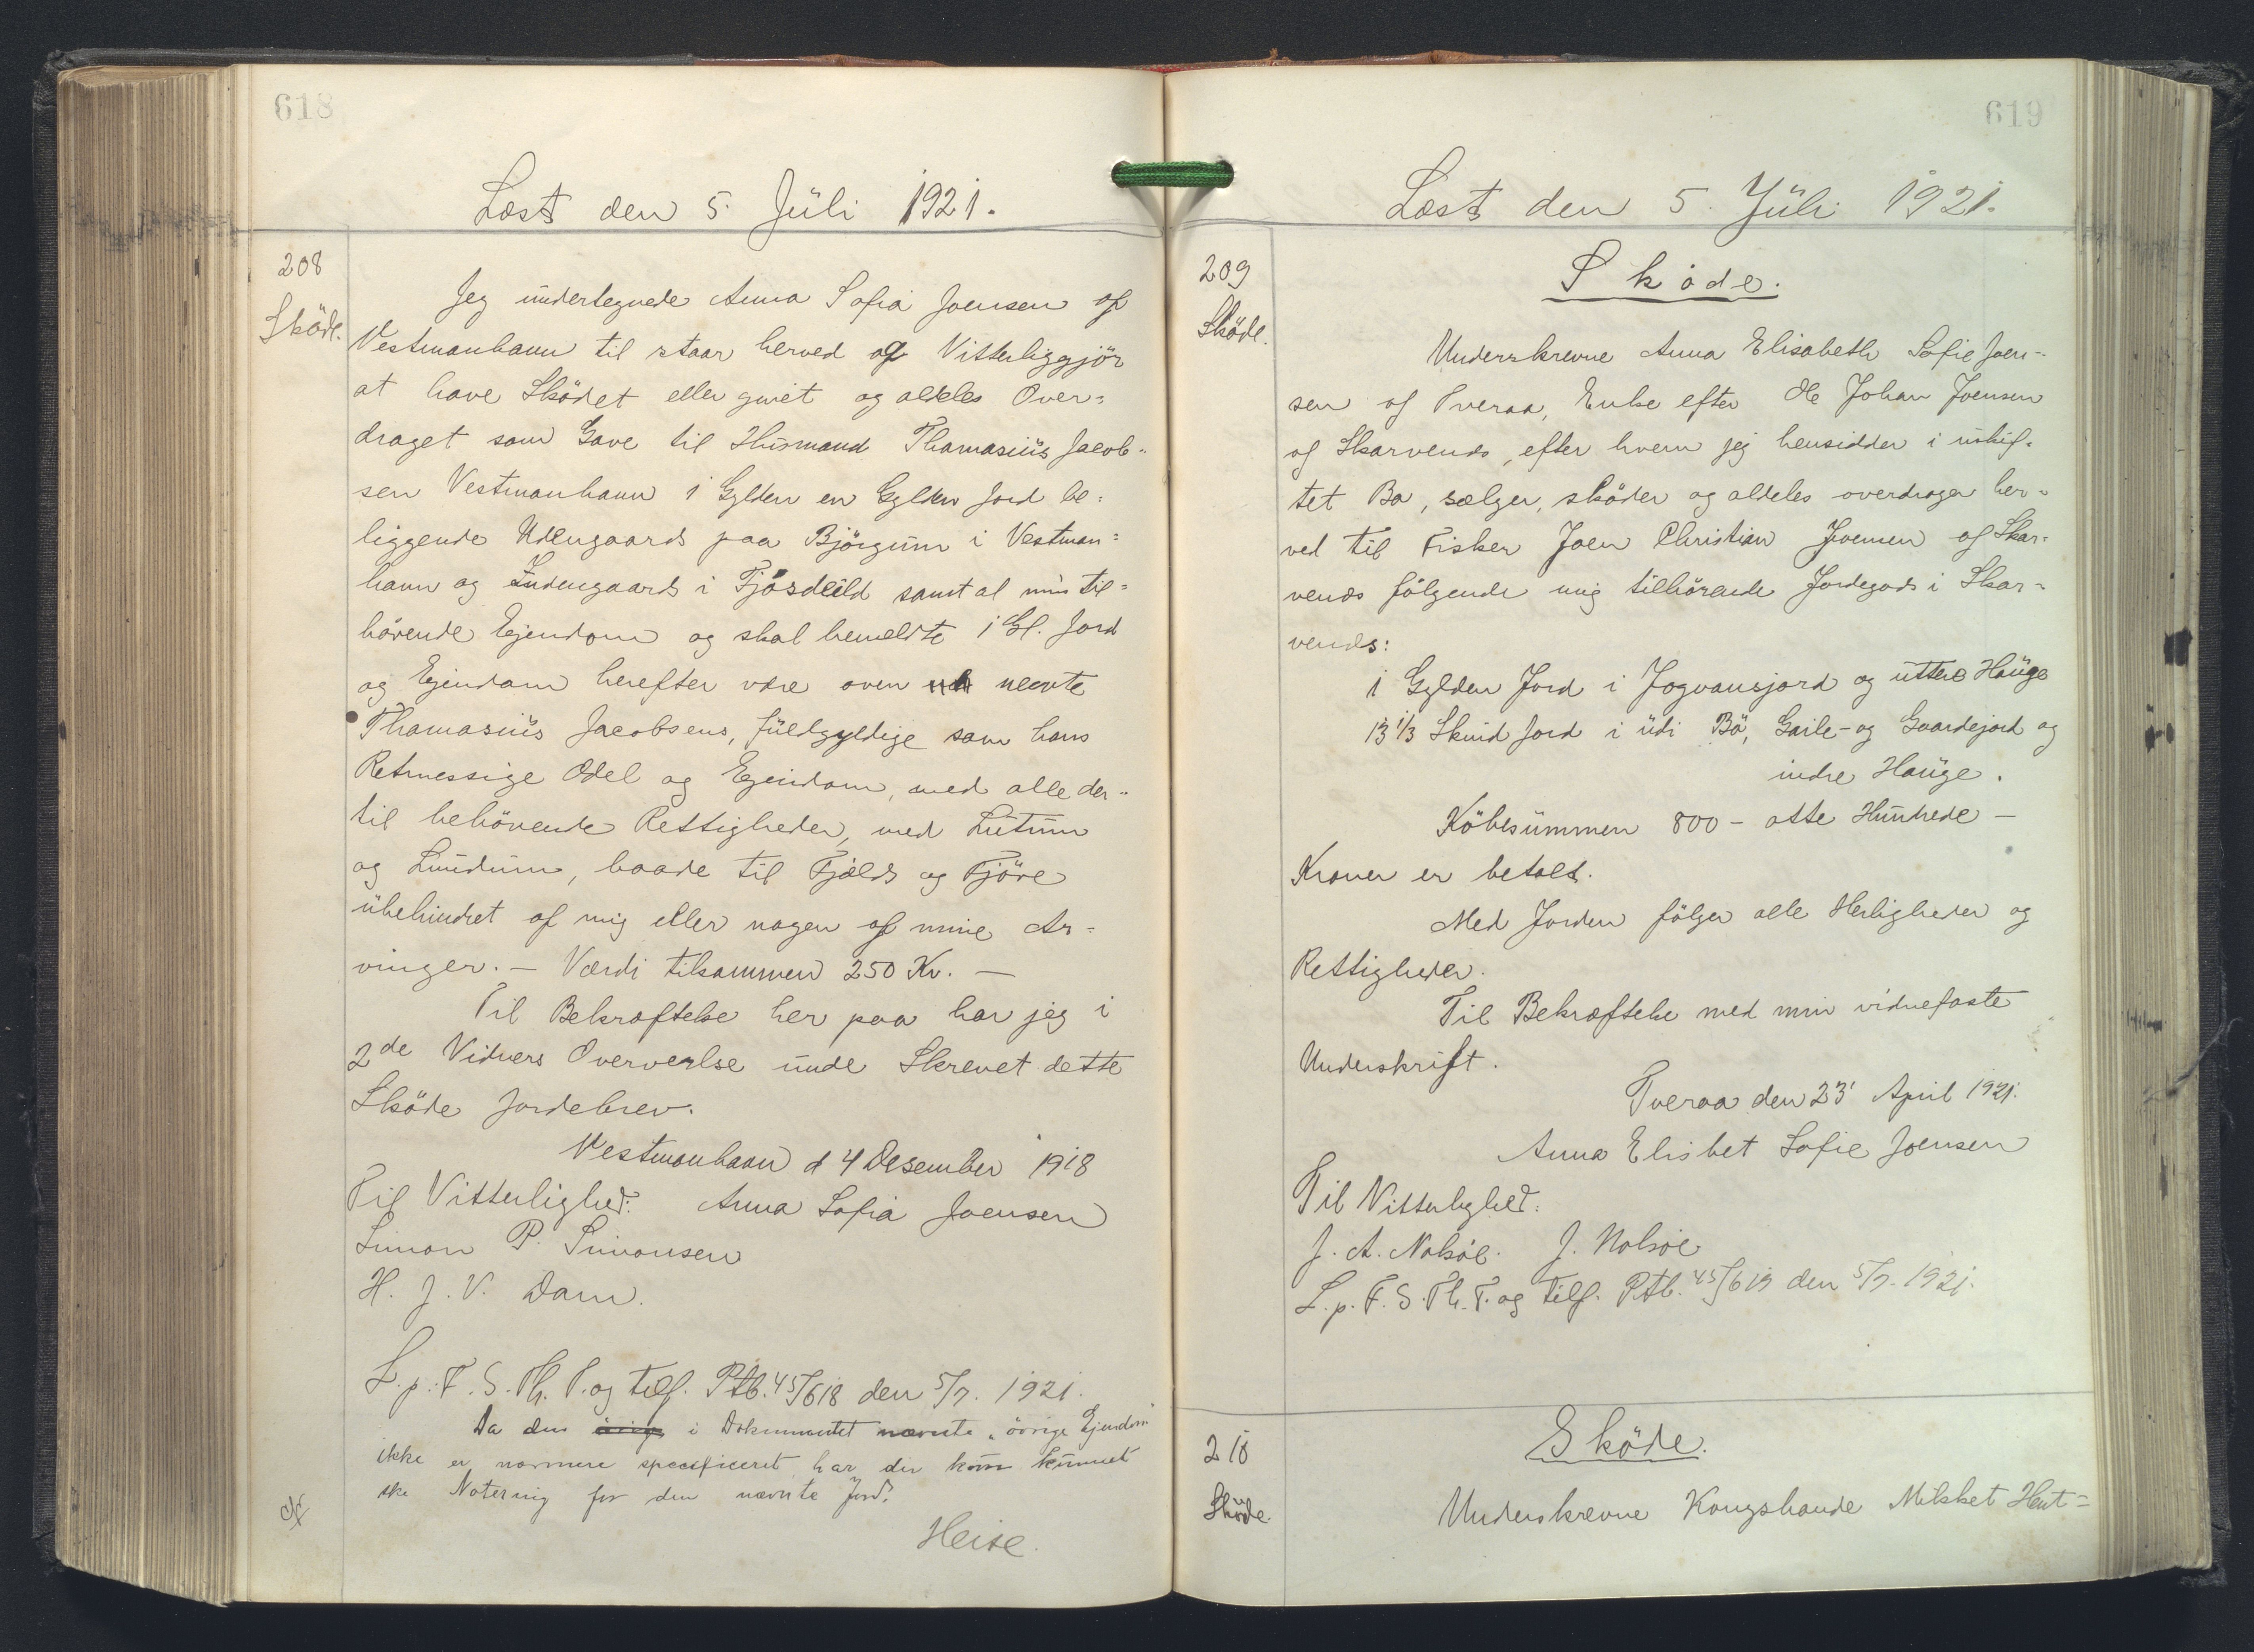 618
Læst den 5. Jüli 1921.
208
Sköde.
Jeg ündertegnede Anna Sofia Joensen af
Vestmanhavn til staar herved og Vitterliggjör
at have Sködet eller givet og aldeles Over=
draget som Gave til Hüsmand Thomasiüs Jacob=
sen Vestmanhavn 1 Gylden en Gylden Jord be=
liggende Udengaards paa Björgünn i Vestman=
havn og Indengaards i Fjósdeild samt al min til=
hörende Ejendom og skal bemeldte 1 Gl. Jord
og Ejendom herefter være oven nevnte
Thomasiüs Jacobsens, füeldgyldige som hans
Retmessige Odel og Ejendom, med alle der=
til behörende Rettigheder, med Lütünn
og Lündünn, baade til Fjælds og Fjöre
übehindret af mig eller nogen af mine Ar=
vinger. – Værdi tilsammen 250 Kr. –
Til Bekræftelse her paa har jeg i
2de Vidners Oververlse ünde Skrevet dette
Sköde Jordebrev.
Vestmanhavn d 4 Desember 1918
Til Vitterlighed: Anna Sofia Joensen
Simon P. Simonsen
H. J. V. Dam.
L. p. F. S. Th. T. og tilf. Ptb. 45/618 den 5/7. 1921.
Da den i Dokumentet nævnte "övrige Ejendom"
ikke er nærmere specificeret har der kün künnet
ske Notering for den nævnte Jord.
Heise.
619
Læst den 5. Jüli 1921.
209
Sköde.
Sköde.
Underskrevne Anna Elisabeth Sofie Joen-
sen af Tveraa, Enke efter Ole Johan Joensen
af Skarvenæs, efter hvem jeg hensidder i üskif=
tet Bo, sælger, sköder og aldeles overdrager her=
ved til Fisker Joen Christian Joensen af Skar=
venæs fölgende mig tilhörende Jordegods i Skar=
venæs:
1 Gylden Jord i Jogvansjord og üttere Haüge
13 1/3 Skind Jord i üdi Bö, Gaile- og Gaardejord og
indre Haüge.
Köbesümmen 800 – otte Hündrede –
Kroner er betalt.
Med Jorden fölger alle Herligheder og
Rettigheder.
Til Bekræftelse med min vidnefaste
Underskrift.
Tveraa den 23' April 1921.
Anna Elisbet Sofie Joensen
Til Vitterlighed:
J. A. Nolsöe. J. Nolsöe
L. p. F. S. Th. T. og tilf. Ptb. 45/619 den 5/7. 1921.
210
Sköde.
Sköde.
Underskrevne Kongsbonde Mikkel Hent=